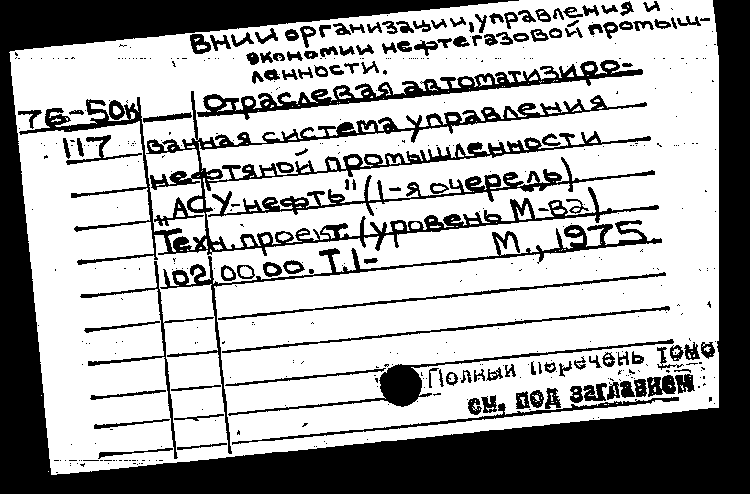 ВНИИ организации, управления и
экономики нефтегазовой промыш-
ленности.
76-50к Отраслевая автоматизиро-
117 ванная система управления
нефтяной промышленности
„АСУ-нефть" (1-я очередь).
Техн. проект. (уровень М-В2).
102.00.00. Т.1- М., 1975.
Полный перечень томо
см. под заглавием